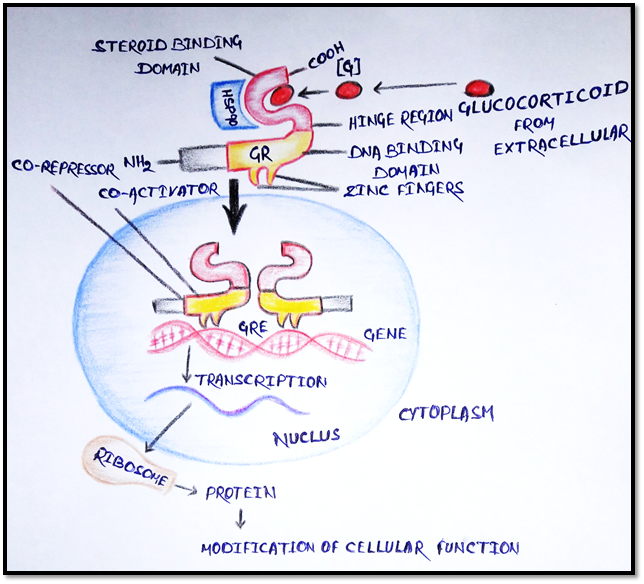 STEROID BINDING
DOMAIN
COOH
[G]
HSP90
GLUCOCORTICOID
FROM
EXTRACELLULAR
HINGE REGION
GR
DNA BINDING
DOMAIN
ZINC FINGERS
CO-REPRESSOR
NH2
CO-ACTIVATOR
GRE
GENE
TRANSCRIPTION
CYTOPLASM
NUCLUS
RIBOSOME
PROTEIN
MODIFICATION OF CELLULAR FUNCTION